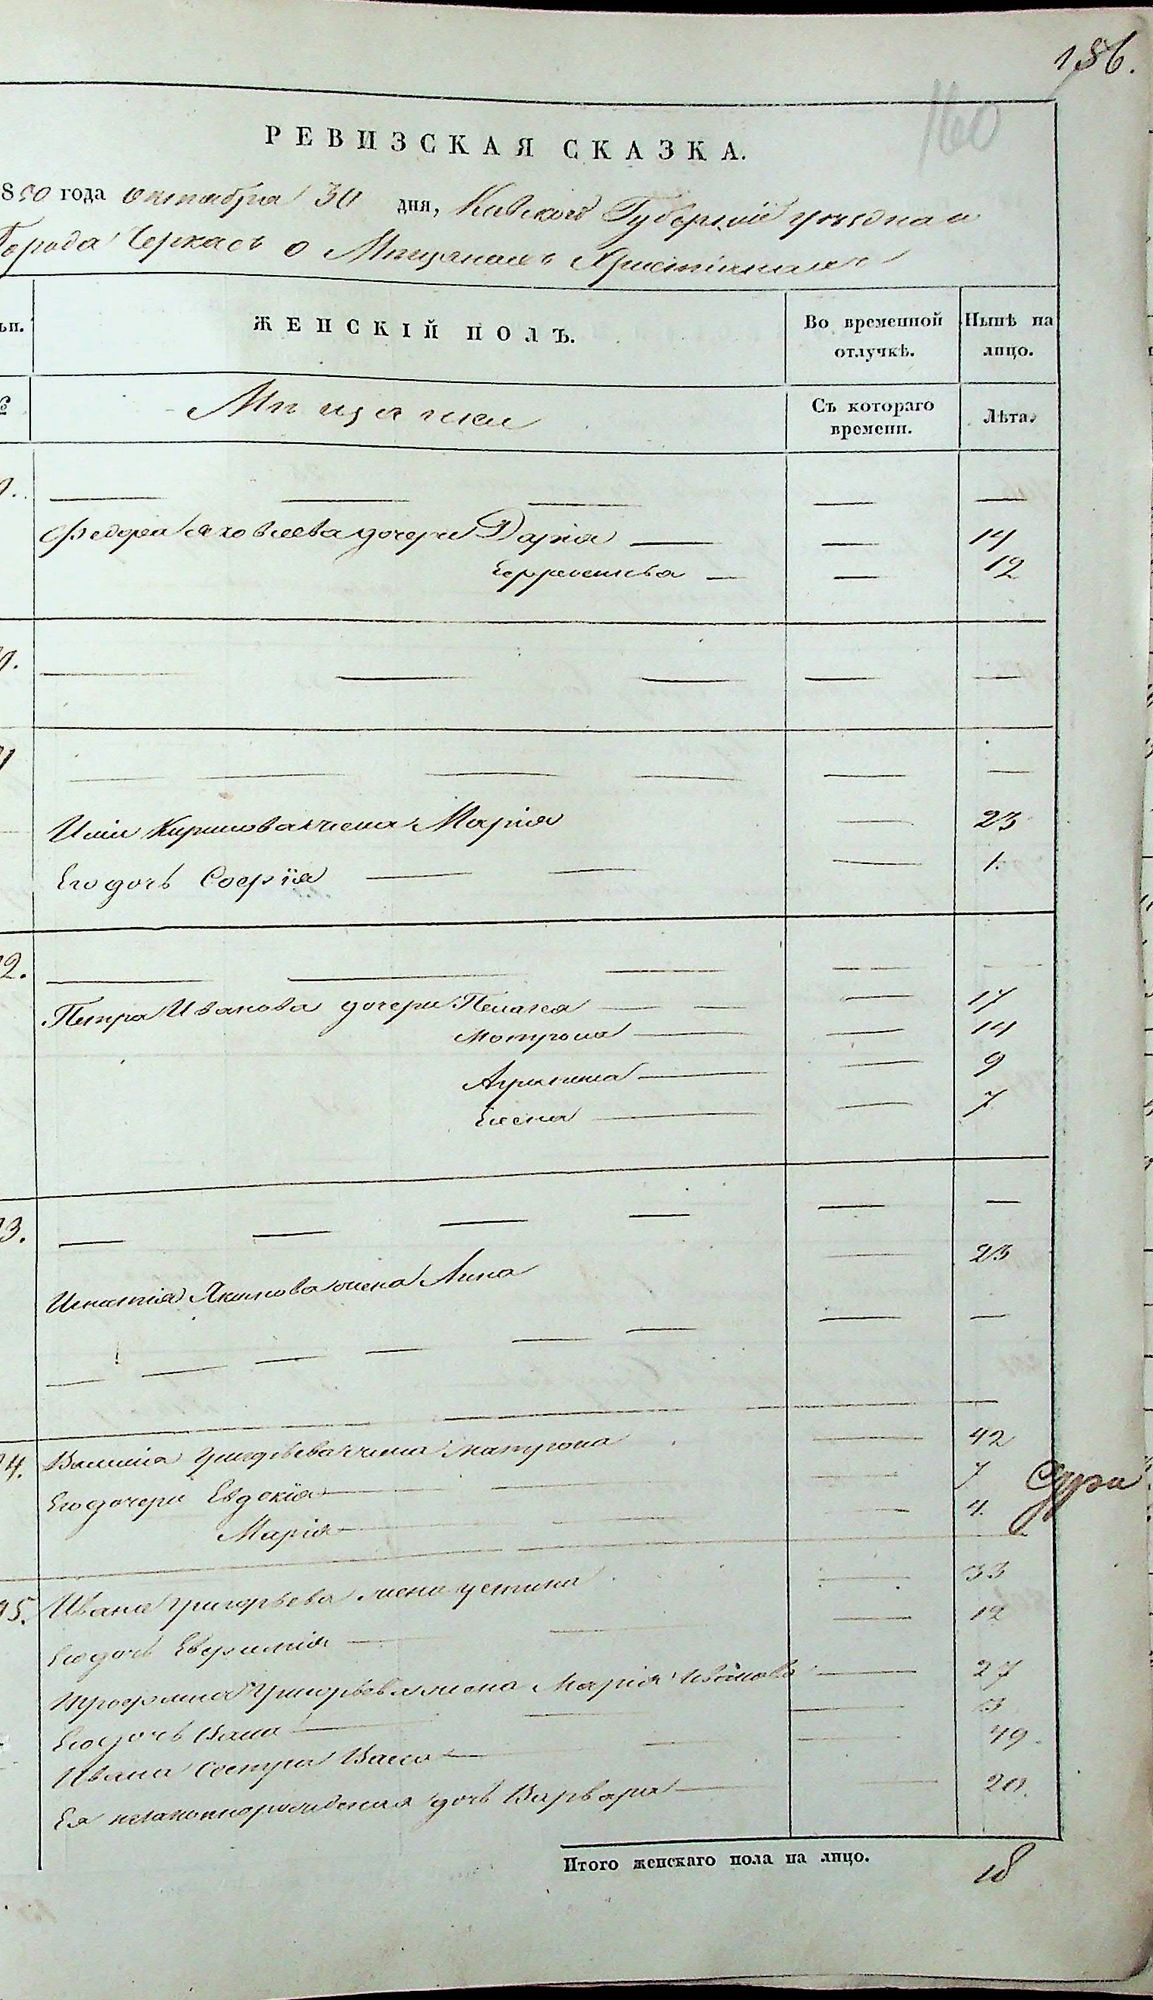 186.
160
РЕВИЗСКАЯ СКАЗКА.
850 года октября 30 дня, Киевской Губернии уезднаго
Города Черкасъ о Мещанахъ Христіанахъ
ЖЕНСКІЙ ПОЛЪ. Во временной отлучкѣ. Нынѣ на лицо.
№ Мещанки Съ котораго времени. Лѣта.
Федора Яковлева дочери Дарія — — 14
Евфросинья — — 12
Ильи Кирилова жена Марія — 23
Его дочь Софрія — — — 1.
2.
Петра Иванова дочери Пелагея — — — 17
Мотрона — — 14
— — 9
Елена — — 7
3. — — — — — —
Игнатія Якимова жена Анна — 23
4. Григорьева жена Матрона — 42
Его дочери Евдокія — — — 7
Марія — — — 4.
95. Ивана Григорьева жена Устина — 33
Его дочь Евфимія — — — 12
Трофима Григорьева жена Марія Иванова — 27
Его дочь — — — 3
Ивана сестра Васса — — — 49.
Ея незаконнорожденная дочь Варвара — — 20.
Итого женскаго пола на лицо. 18